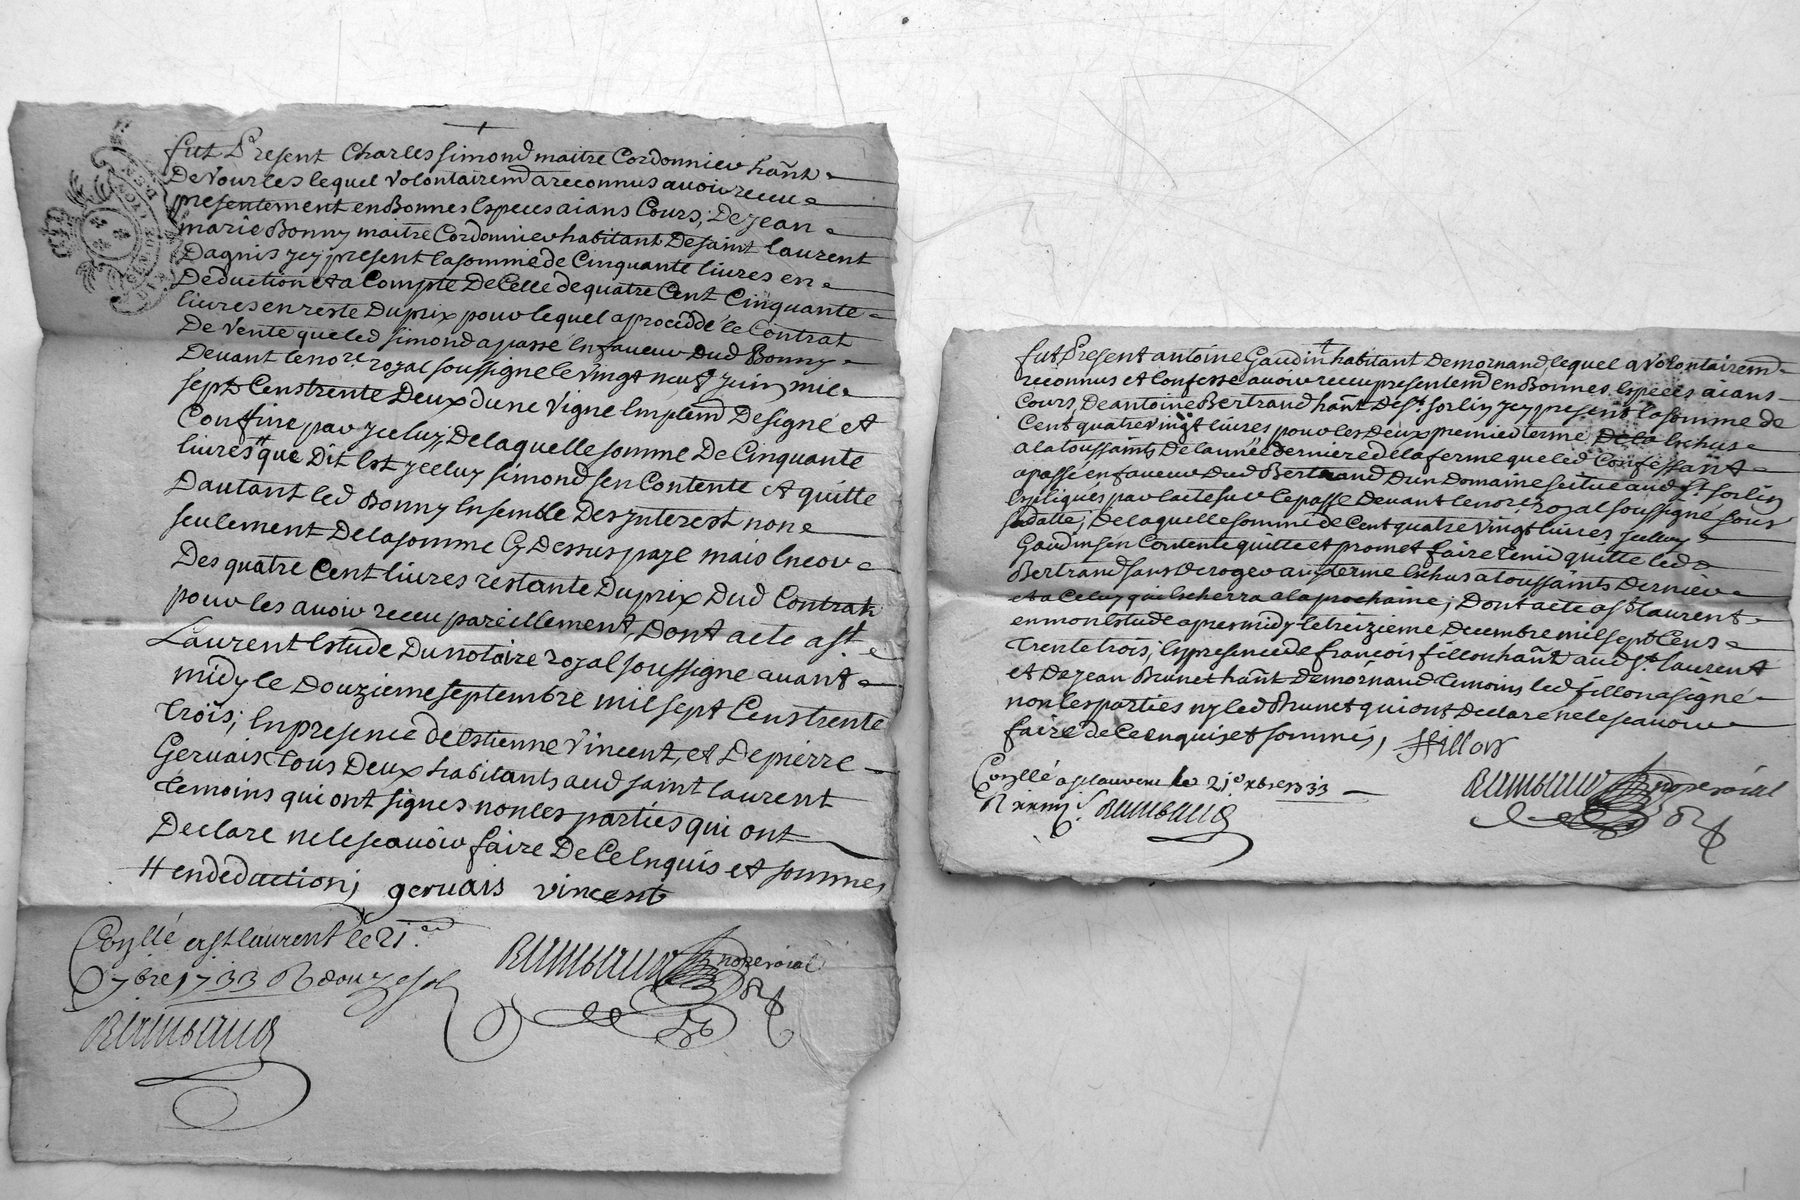 fut Present Charles Simond maitre Cordonnier hañt
De Vourles lequel volontairemd a reconnus avoir receu
presentement en Bonnes Especes aians Cours, De jean
marie Bonny maitre Cordonnier habitant De saint laurent
Dagnis jcy present la somme de Cinquante livres en
Deduction et a Compte De Celle de quatre Cent Cinquante
livres en reste Du prix pour lequel a procedde le Contrat
De vente que led simond a passé En faveur Dud Bonny
Devant le nore. royal soussigné le vingt neuf juin mil
sept Cens trente Deux d'une vigne Emplemd Designé et
Confine par jcelluy, De laquelle somme De Cinquante
livres # que Dit Est jcelluy simond s'en Contente et quitte
D'autant led Bonny Ensemble Des jnterest non
seulement De la somme Cy Dessus payé mais Encor
Des quatre Cent livres restante Du prix Dud Contrat
pour les avoir receu pareillement, Dont acte a st.
Laurent Estude Du notaire royal soussigne avant
midy le Douzieme septembre mil sept Cens trente
trois; En presence de Estienne Vincent, et De pierre
Gervais tous Deux habitants aud saint laurent
temoins qui ont signes non les parties qui ont
Declare ne le scavoir faire De Ce Enquis et sommes
# en deduction; gervais vincent
Conllé a st laurent le 21e.
7bre 1733 R douze sol
Rambaud nore roial
Rambaud
fut Present antoine Gaudin habitant De mornand, lequel a volontairemd
reconnus et Confesse avoir receu presentemd en Bonnes Especes aians
Cours, De antoine Bertrand hañt De st. sorlin jcy present la somme de
Cent quatre vingt livres pour les Deux premier terme De la Echus
a la toussaints De l'année derniere de la ferme que led Confessant
a passé en faveur Dud Bertrand D'un Domaine scitue aud st. sorlin
Expliqués par l'acte sur Ce passé Devant le nore. royal soussigné sous
sa datte; De laquelle somme de Cent quatre vingt livres jcelluy
Gaudin s'en Contente quitte et promet faire tenir quitte led
Bertrand sans deroger au terme Echus a toussaints Dernier
et a Celuy que Echerra a la prochaine; Dont acte a st laurent
en mon Estude apres midy le treizieme Decembre mil sept Cens
trente trois; En presence de francois fillon hañt aud st. laurent
et De jean Brunet hañt De mornand temoins led fillon a signé
non les parties ny led Brunet qui ont Declare ne le scavoir
faire de Ce enquis et sommés, ffillon
Conllé a st laurent le 21e. xbre 1733
Rambaud nore roial
Rambaud